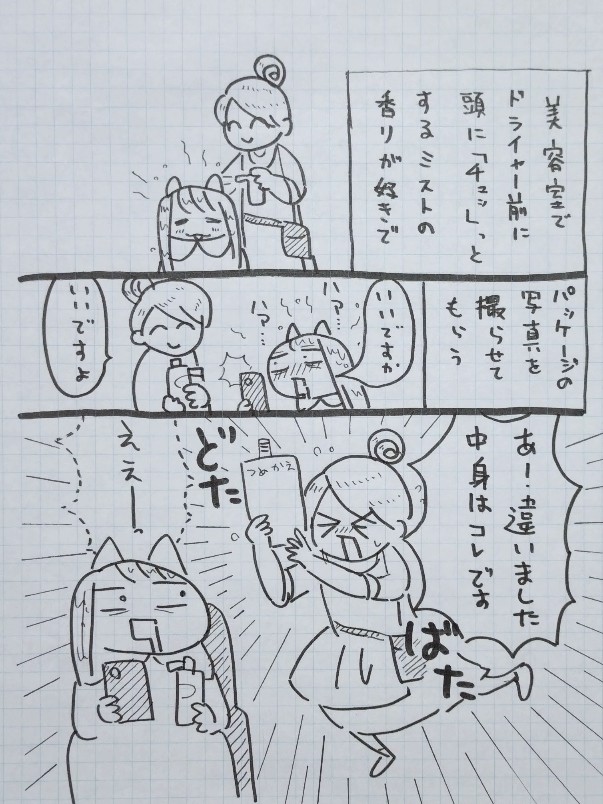 美容室で
ドライヤー前に
頭に「チュッ」っと
するミストの
香りが好きで
パッケージの
写真を
撮らせて
もらう
いいですか
ハァ…
ハァ…
いいですよ
あー!違いました
中身はコレです
つめかえ
どた
ばた
ええー